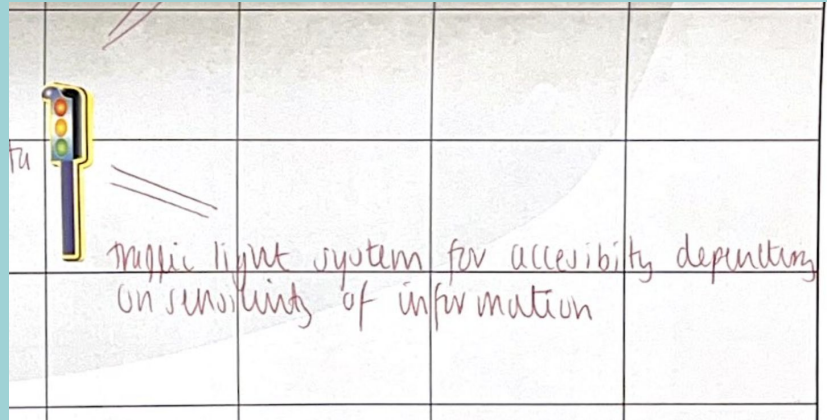 traffic light system for accesibity depending
on sensitivity of information